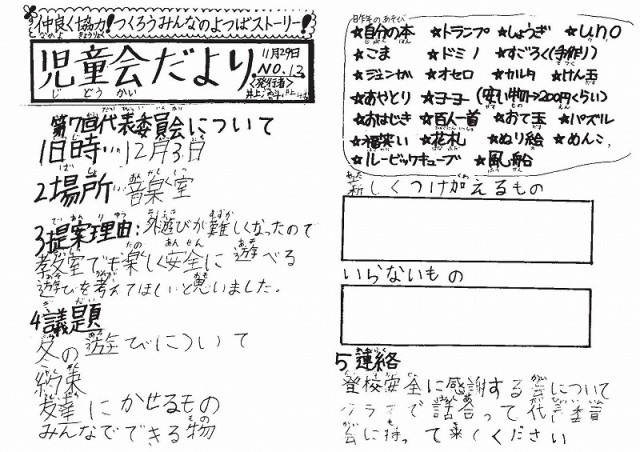 仲良く協力!つくろうみんなのよつばストーリー!
児童会だより
じどうかい
11月29日
NO.13
<発行者>
第7回代表委員会について
1日時…12月3日
2場所…音楽室
3提案理由:外遊びが難しくなったので
教室でも楽しく安全に遊べる
遊びを考えてほしいと思いました。
4議題
冬の遊びについて
約束
友達にかせるもの
みんなでできる物
昨年のあそび
★自分の本 ★トランプ ★しょうぎ ★uno
★こま ★ドミノ ★すごろく(手作り)
★ジェンガ ★オセロ ★カルタ ★けん玉
★あやとり ★ヨーヨー(安い物→200円くらい)
★おはじき ★百人一首 ★お手玉 ★パズル
★福笑い ★花札 ★ぬり絵 ★めんこ
★ルービックキューブ ★風船
新しくつけ加えるもの
いらないもの
5連絡
登校安全に感謝する会について
クラスで話合って代表委員
会に持って来てください